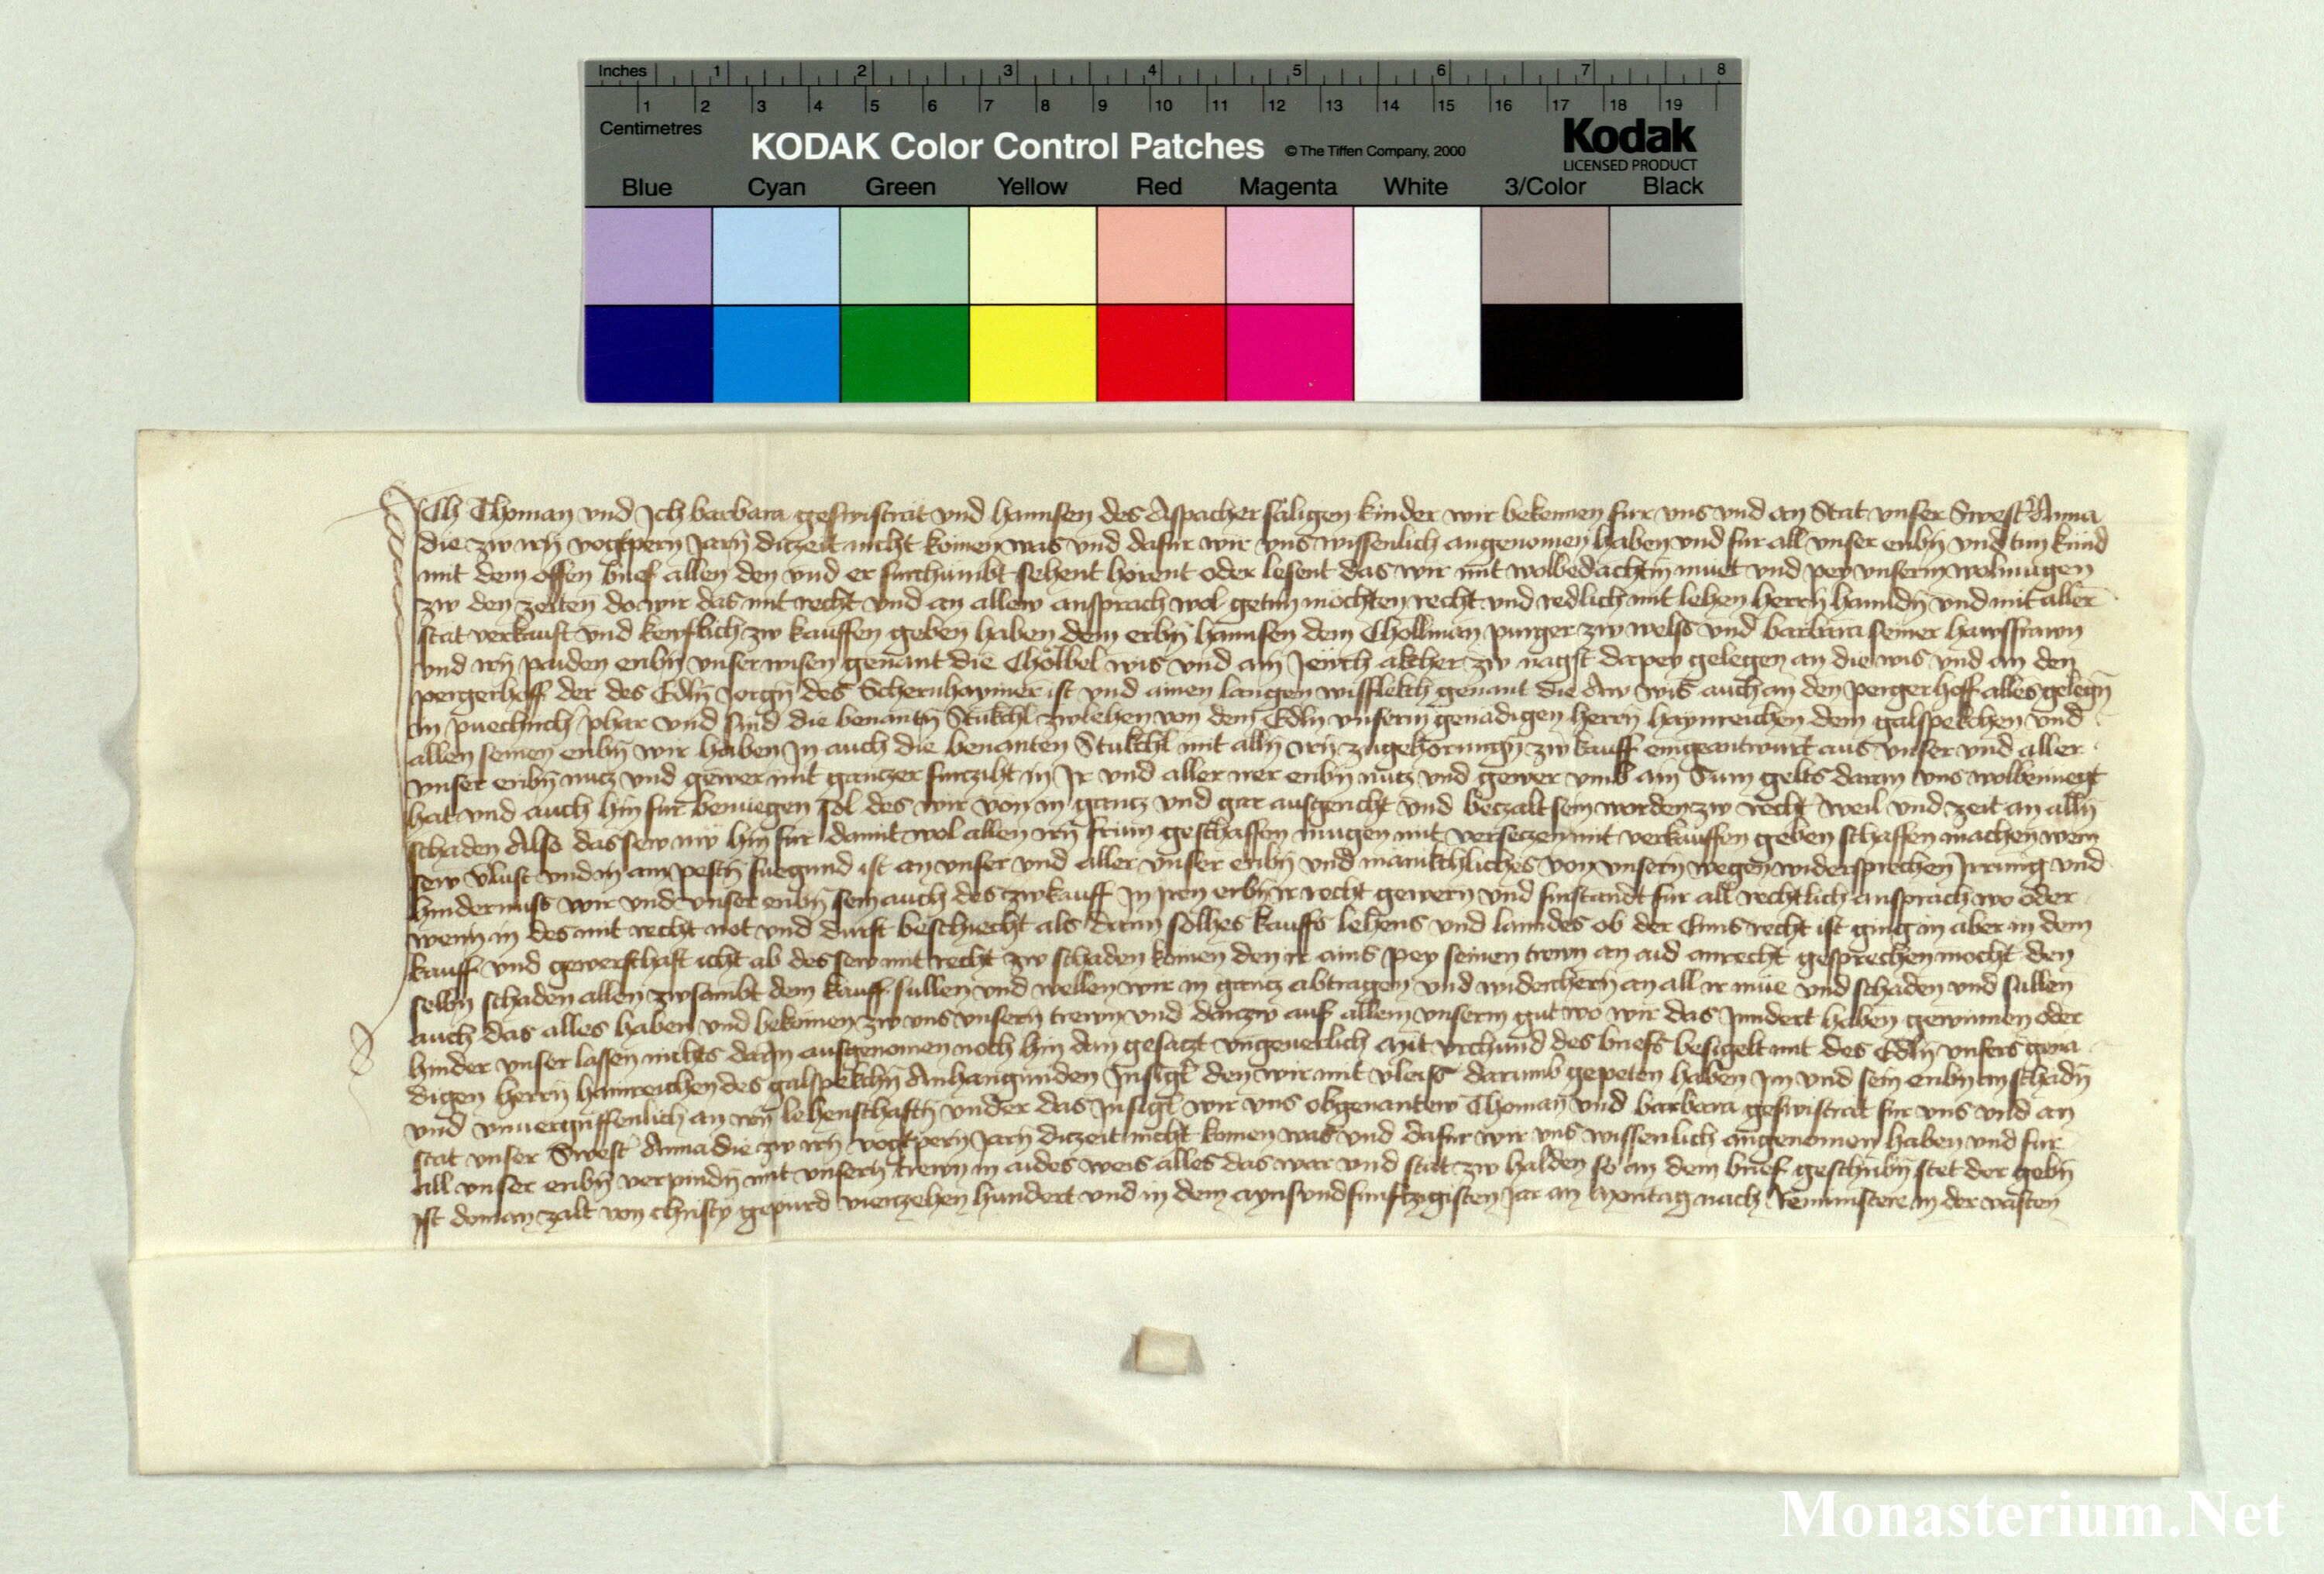 Inches 1 2 3 4 5 6 7 8
1 2 3 4 5 6 7 8 9 10 11 12 13 14 15 16 17 18 19
Centimetres
KODAK Color Control Patches © The Tiffen Company, 2000 Kodak
LICENSED PRODUCT
Blue Cyan Green Yellow Red Magenta White 3/Color Black
Ich Thoman vnd Ich barbara geswistrat vnd hannsen des Aspacher saligen kinder wir bekennen fur vns vnd an Stat vnser Swest Anna
die zw irn vogtpern Jarn diczeit nicht komen was vnd dafur wir vns wissenlich angenomen haben vnd fur all vnser eribn vnd tun kund
mit dem offen brief allen den vnd er furchumbt sehent horent oder lesent das wir mit wolbedachtm muet vnd pey vnserm wolmugen
zw den zeiten do wir das mit recht vnd an allew ansprach wol getun mochten recht vnd redlich mit lehen herrn hanndn vnd mit aller
stat verkauft vnd kewflich zw kauffen geben haben dem erbn hannsen dem Chollman purger zw welss vnd barbara seiner hawsfrawn
vnd irn paiden eribn vnser wisen genant die Chölbel wis vnd ain Jewch akher zw nagst dapey gelegen an die wis vnd an den
pergerhoff der des Edln Jorgn des Schernhaymer ist vnd ainen langen wisflekch genant die Aw wis auch an den perger hoff alles gelegn
in puechircher pharr vnd sind die benantn Stukchl zwlehen von dem Edln vnserm genadigen herrn haynreichen dem galspekchen vnd
allen seinen eribn wir haben In auch die benanten Stukchl mit alln irn zugehorungn zw kauff eingeantwurt aus vnser vnd aller
vnser eribn nucz vnd gewer mit ganczer furziht in Ir vnd aller irer eribn nucz vnd gewer vmb ain Sum gelts daran vns wolbenuegt
hat vnd auch hin fur benuegen sol des wir von in gancz vnd gar ausgericht vnd beczalt sein worden zw recht weil vnd zeit an alln
schaden Also das sew nw hin fur damit wol allen irn frum geschaffen mugen mit verseczen mit verkauffen geben schaffen machen wem
sew vlust vnd in am pestn fuegund ist an vnser vnd aller vnser eribn vnd manikchliches von vnsern wegen widersprechen Irrung vnd
hindernuss wir vnd vnser eribn sein auch des zwkauff In Iren erbn ir recht gewern vnd furstandt fur all rechtlich ansprach wo oder
wenn in des mit recht not vnd durft beschiecht als dann solhes kauffs lehens vnd lanndes ob der Enns recht ist ging in aber in dem
kauff vnd gewerschaft icht ab des sew mit recht zw schaden komen den ir ains pey seinen trewn an aid anrecht gesprechen mocht den
selbn schaden allen zwsambt dem kauff sullen vnd wellen wir in gancz abtragen vnd widerchern an all ir mue vnd schaden vnd sullen
auch das alles haben vnd bekomen zw vns vnsern trewn vnd darzw auf allem vnserm gut wo wir das Inndert haben gewinnen oder
hinder vnser lassen nichts darin ausgenomen noch hin dan gesaczt vngeuerlich Mit vrchund des briefs besigelt mit des Edln vnsers gena
digen herrn hainreichen des galspekchn Anhangunden Insigl den wir mit vleiss darumb gepeten haben Im vnd sein eribn an schadn
vnd vnuergriffenlich an irn lehenschaftn vnder das Insigl wir vns obgenantew Thoman vnd barbara geswistrat fur vns vnd an
stat vnser Swest Anna die zw irn vogtpern Jarn diczeit nicht komen was vnd dafur wir vns wissenlich angenomen haben vnd fur
all vnser eribn verpindn mit vnsern trewn in aides weis alles das war vnd stat zw halden so in dem brief geschribn stet der gebn
ist do man zalt von christy gepurd vierczehen hundert vnd in dem aynsvndfunftzigisten Jar an Montag nach Reminiscere in der vasten
Monasterium.Net